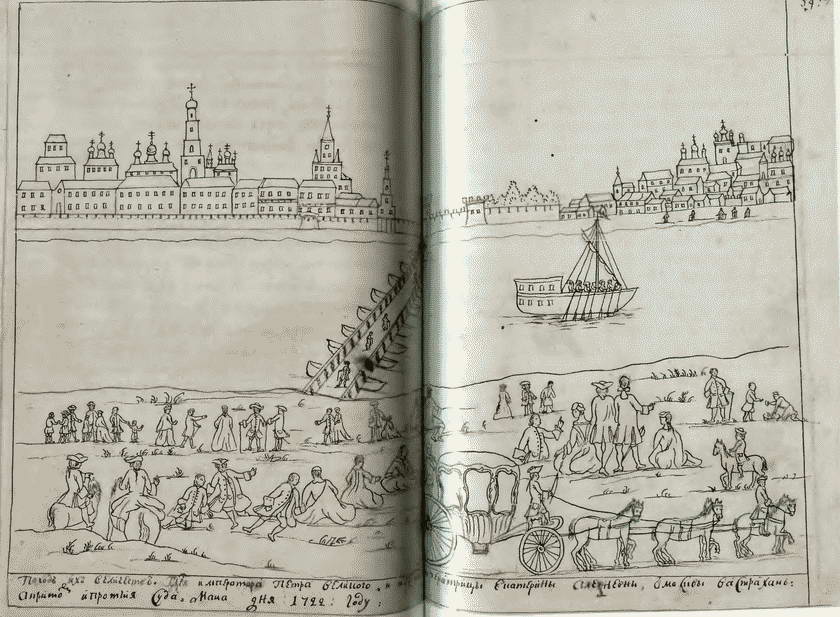 Походъ ихъ величествъ. Его императора Петра великого, и импе‑ ратрицы Екатерины Алеѯѣвны, с москвы вастрахань:
и протчия суда. маиа дня 1722: году: